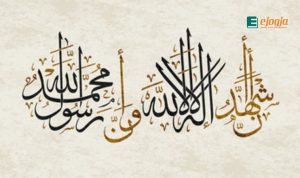 ejogja
أشهد أن لا إله إلا الله وأن محمد رسول الله